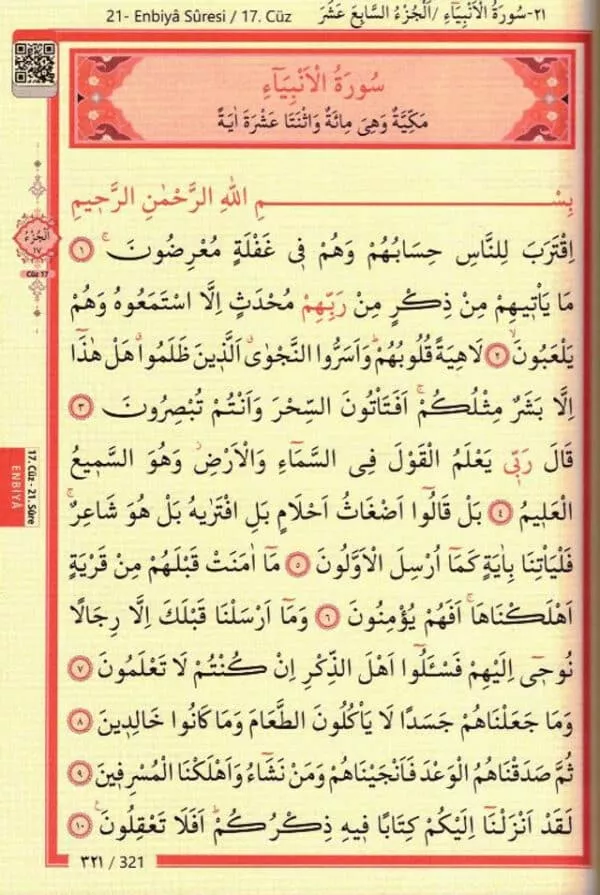 21- Enbiyâ Sûresi / 17. Cüz
٢١-سُورَةُ الْاَنْبِيَٓاءِ /اَلْجُزْءُ السَّابِعَ عَشَرَ
سُورَةُ الْاَنْبِيَٓاءِ
مَكِّيَّةٌ وَهِىَ مِائَةٌ وَاثْنَتَا عَشْرَةَ اٰيَةً
بِسْمِ اللّٰهِ الرَّحْمٰنِ الرَّحٖيمِ
اِقْتَرَبَ لِلنَّاسِ حِسَابُهُمْ وَهُمْ فٖى غَفْلَةٍ مُعْرِضُونَۚ ١
مَا يَاْتٖيهِمْ مِنْ ذِكْرٍ مِنْ رَبِّهِمْ مُحْدَثٍ اِلَّا اسْتَمَعُوهُ وَهُمْ
يَلْعَبُونَۙ ٢ لَاهِيَةً قُلُوبُهُمْؕ وَاَسَرُّوا النَّجْوٰىۗ اَلَّذٖينَ ظَلَمُواۗ هَلْ هٰذَٓا
اِلَّا بَشَرٌ مِثْلُكُمْۚ اَفَتَاْتُونَ السِّحْرَ وَاَنْتُمْ تُبْصِرُونَ ٣
قَالَ رَبّٖى يَعْلَمُ الْقَوْلَ فِى السَّمَٓاءِ وَالْاَرْضِؗ وَهُوَ السَّمٖيعُ
الْعَلٖيمُ ٤ بَلْ قَالُٓوا اَضْغَاثُ اَحْلَامٍ بَلِ افْتَرٰيهُ بَلْ هُوَ شَاعِرٌۚ
فَلْيَاْتِنَا بِاٰيَةٍ كَمَٓا اُرْسِلَ الْاَوَّلُونَ ٥ مَٓا اٰمَنَتْ قَبْلَهُمْ مِنْ قَرْيَةٍ
اَهْلَكْنَاهَاۚ اَفَهُمْ يُؤْمِنُونَ ٦ وَمَٓا اَرْسَلْنَا قَبْلَكَ اِلَّا رِجَالًا
نُوحٖٓى اِلَيْهِمْ فَسْـَٔلُٓوا اَهْلَ الذِّكْرِ اِنْ كُنْتُمْ لَا تَعْلَمُونَ ٧
وَمَا جَعَلْنَاهُمْ جَسَدًا لَا يَاْكُلُونَ الطَّعَامَ وَمَا كَانُوا خَالِدٖينَ ٨
ثُمَّ صَدَقْنَاهُمُ الْوَعْدَ فَاَنْجَيْنَاهُمْ وَمَنْ نَشَٓاءُ وَاَهْلَكْنَا الْمُسْرِفٖينَ ٩
لَقَدْ اَنْزَلْنَٓا اِلَيْكُمْ كِتَابًا فٖيهِ ذِكْرُكُمْؕ اَفَلَا تَعْقِلُونَۚ ١٠
اَلْجُزْءُ
١٧
Cüz 17
17. Cüz - 21. Sûre
ENBİYÂ
٣٢١ / 321